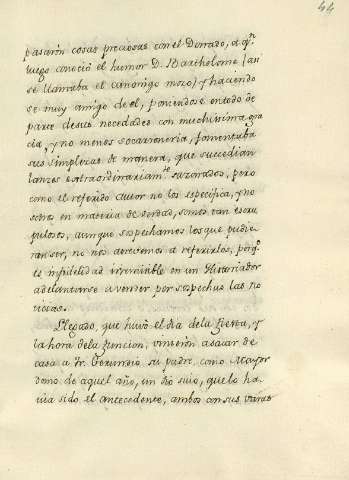 44
pasarón cosas preciosas con el Donado, à qn
luego conociò el humor D. Bartholomè (asi
se llamaba el canonigo mozo) y haciendo
se muy amigo de el, poniendose en todo de
parte de sus necedades con muchissima gra
cia, y no menos socarroneria, fomentaba
sus simplezas de manera, que succedian
lanzes extraordinariamte sazonados, pero
como el referido autor no los especifica, y no
sotros en materia de verdad, somos tan escru
pulosos, aunque sospechamos los que pudie
ran ser, no nos atrevemos à referirlos, porqe
es infidelidad irremisible en un Historiador
adelantarse à vender por sospechas las no
ticias.
Llegado, que huvò el dia de la fiesta, y
la hora de la funcion, vinieròn à sacar de
casa à Fr. Gerundio su padre, como Mayor
domo de aquel año, un tio suio, que lo ha
via sido el antecedente, ambos con sus varas